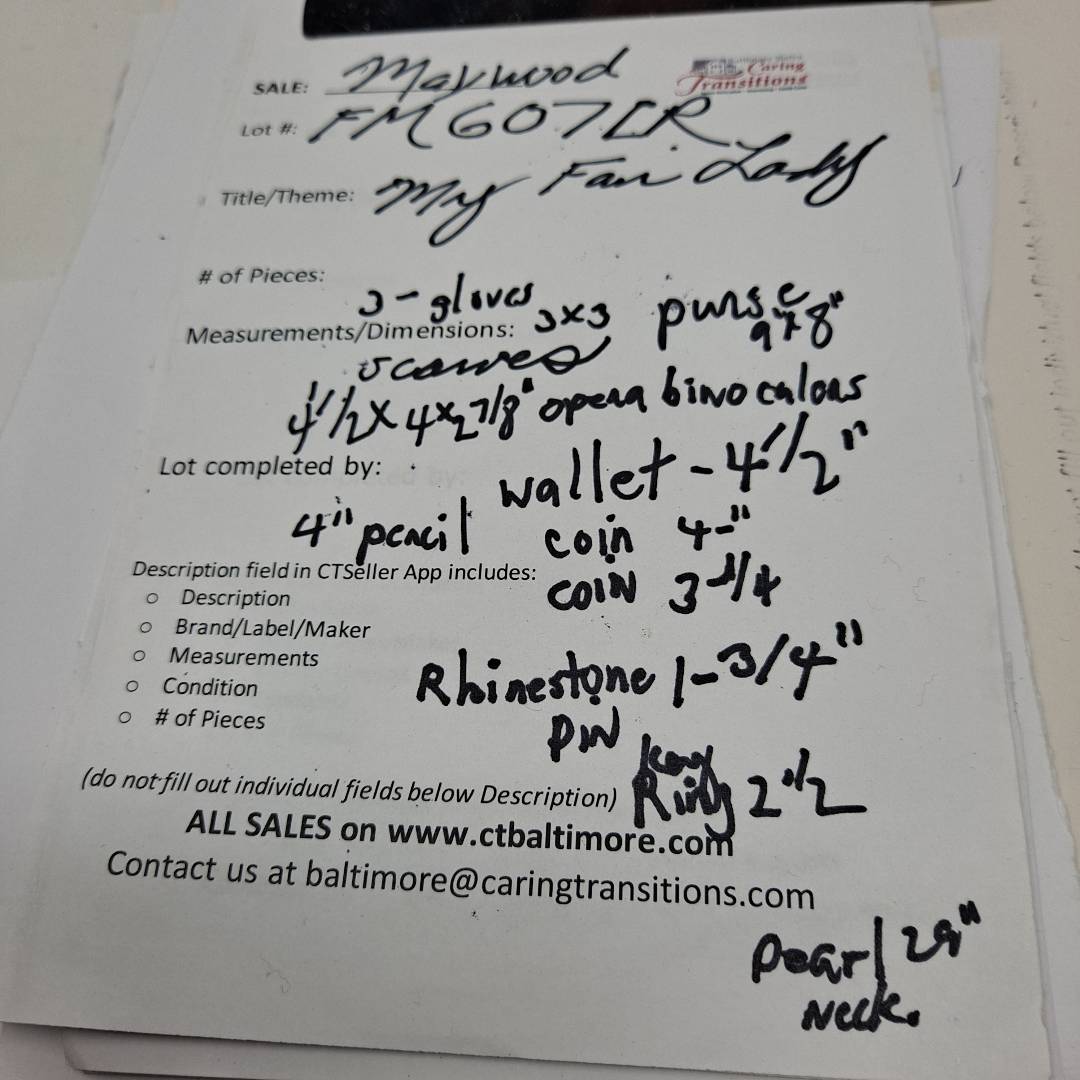 SALE: Maywood
Caring
Transitions
Lot #: FM607CR
Title/Theme: My Fair Lady
# of Pieces:
3-gloves
purse
Measurements/Dimensions: 3x3
9x8"
scarves
4 1/2 x 4 x 2 7/8" opera binoculars
Lot completed by:
wallet - 4 1/2"
4" pencil
coin 4-"
Description field in CTSeller App includes:
coin 3 3/4
○ Description
○ Brand/Label/Maker
○ Measurements
○ Condition
○ # of Pieces
Rhinestone 1-3/4"
PIN
(do not fill out individual fields below Description)
Key
Ring 2 1/2
ALL SALES on www.ctbaltimore.com
Contact us at baltimore@caringtransitions.com
pearl 28"
Neck.